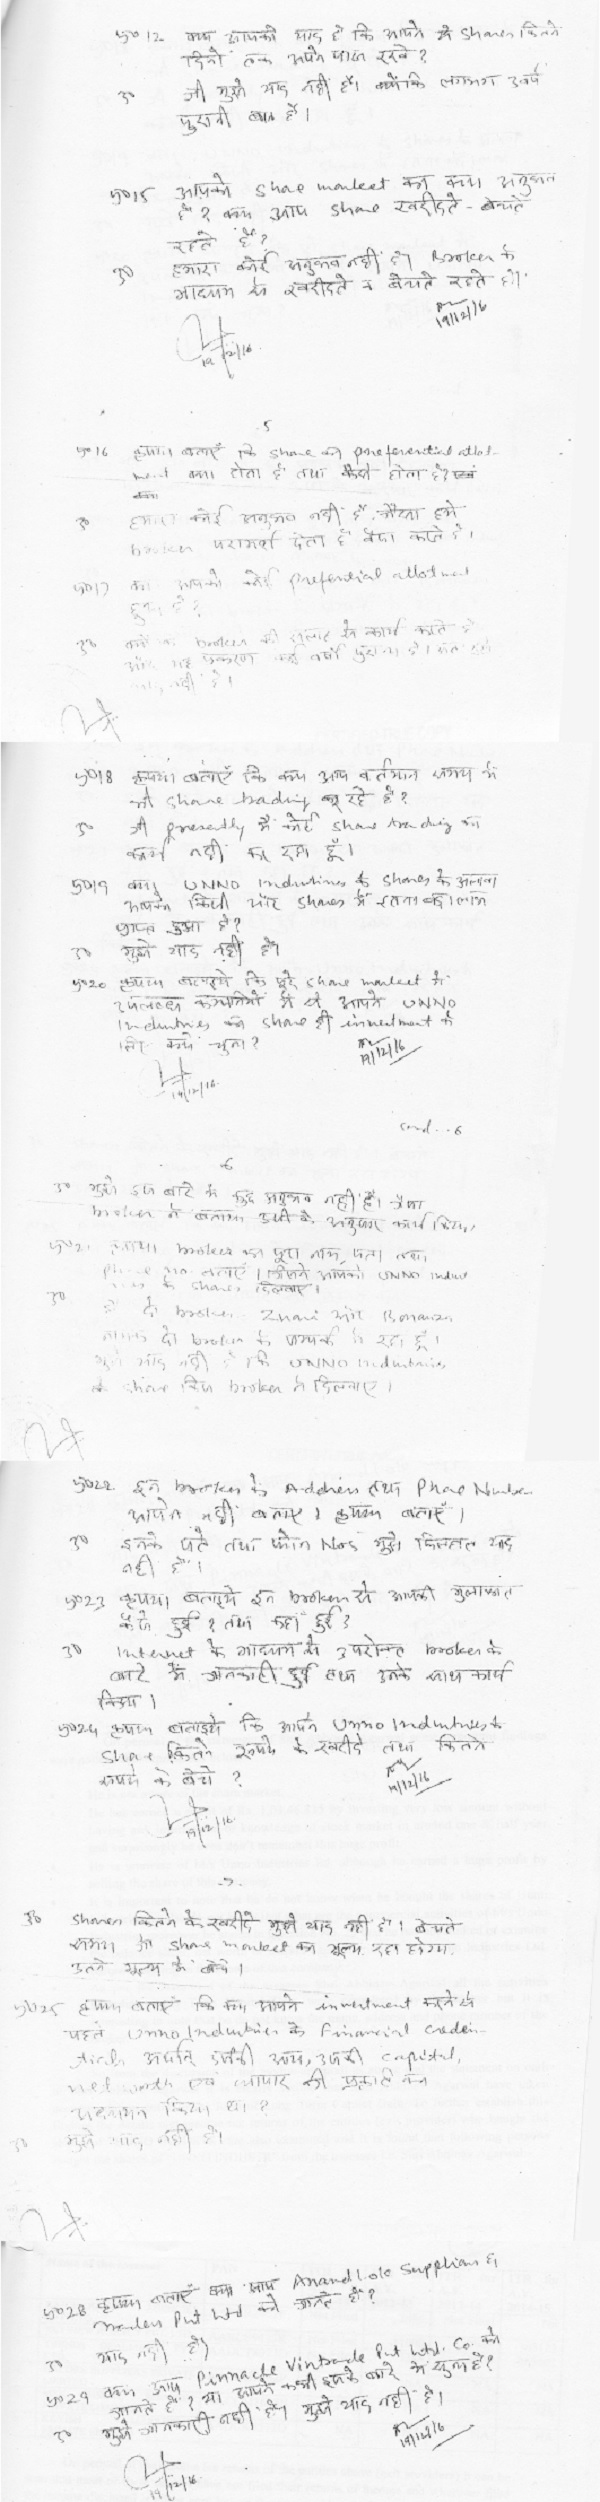 प्र012 क्या आपको याद है कि आपने ये shares कितने
दिनों तक अपने पास रखे?
उ0 जी मुझे याद नहीं है। क्योंकि लगभग 3 वर्ष
पुरानी बात है।
प्र015 आपको share market का क्या अनुभव
है? क्या आप share खरीदते - बेचते
रहते हैं?
उ0 हमारा कोई अनुभव नहीं है। Broker के
माध्यम से खरीदते व बेचते रहते हैं।
19/12/16
19/12/16
5
प्र016 कृपया बताएँ कि share का preferential allot-
ment क्या होता है तथा कैसे होता है?
उ0 हमारा कोई अनुभव नहीं है, जैसा हमें
broker परामर्श देता है वैसा करते हैं।
प्र017 क्या आपको कोई preferential allotment
हुआ है?
उ0 broker की सलाह से कार्य करते हैं
और यह प्रकरण कई वर्षों पुराना है।
याद नहीं है।
प्र018 कृपया बताएँ कि क्या आप वर्तमान समय में
भी share trading कर रहे हैं?
उ0 जी presently मैं कोई share trading का
कार्य नहीं कर रहा हूँ।
प्र019 क्या UNNO Industries के shares के अलावा
आपको किसी और shares में इतना बड़ा लाभ
प्राप्त हुआ है?
उ0 मुझे याद नहीं है।
प्र020 कृपया बताइये कि पूरे share market में
उपलब्ध कम्पनियों में से आपने UNNO
Industries का share ही investment के
लिए क्यों चुना?
19/12/16
19/12/16
Cond...6
6
उ0 मुझे इस बारे में कुछ अनुभव नहीं है। जैसा
broker ने बताया उसी के अनुसार कार्य किया।
प्र021 कृपया broker का पूरा नाम, पता तथा
phone no. बताएँ। जिसने आपको UNNO Indust
ries के shares दिलवाए।
उ0 दो broker और Bonanza
नामक दो broker के सम्पर्क में रहा हूँ।
मुझे याद नहीं है कि UNNO Industries
के share किस broker ने दिलवाए।
प्र022 इन broker के Address तथा Phone Number
आपने नहीं बताए। कृपया बताएँ।
उ0 इनके पते तथा फोन Nos मुझे फिलहाल याद
नहीं हैं।
प्र023 कृपया बताइये इन broker से आपकी मुलाकात
कैसे हुई? तथा कहां हुई?
उ0 Internet के माध्यम से उपरोक्त broker के
बारे में जानकारी हुई तथा उनके साथ कार्य
किया।
प्र024 कृपया बताइये कि आपने Unno Industries के
Share कितने रूपये के खरीदे तथा कितने
रूपये के बेचे?
19/12/16
19/12/16
-7-
उ0 Shares कितने के खरीदे मुझे याद नहीं है। बेचते
समय जो share market का मूल्य रहा होगा
उतने मूल्य के बेचे।
प्र025 कृपया बताएँ कि क्या आपने investment करने से
पहले Unno Industries के Financial creden-
tials अर्थात उसकी आय, उसकी capital,
net worth एवं व्यापार की प्रकृति का
अध्ययन किया था?
उ0 मुझे याद नहीं है।
प्र028 कृपया बताएँ क्या आप Anandlok Suppliers &
Traders Pvt Ltd को जानते हैं?
उ0 याद नहीं है।
प्र029 क्या आप Pinnacle Vintrade Pvt Ltd. Co. को
जानते हैं? या आपने कभी इसके बारे में सुना है?
उ0 मुझे जानकारी नहीं है। मुझे याद नहीं है।
19/12/16
19/12/16